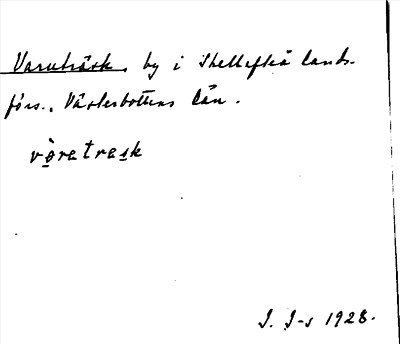 Varuträsk, by i Skellefteå lands-
förs., Västerbottens län.
vòretresk
J. J-s 1928.